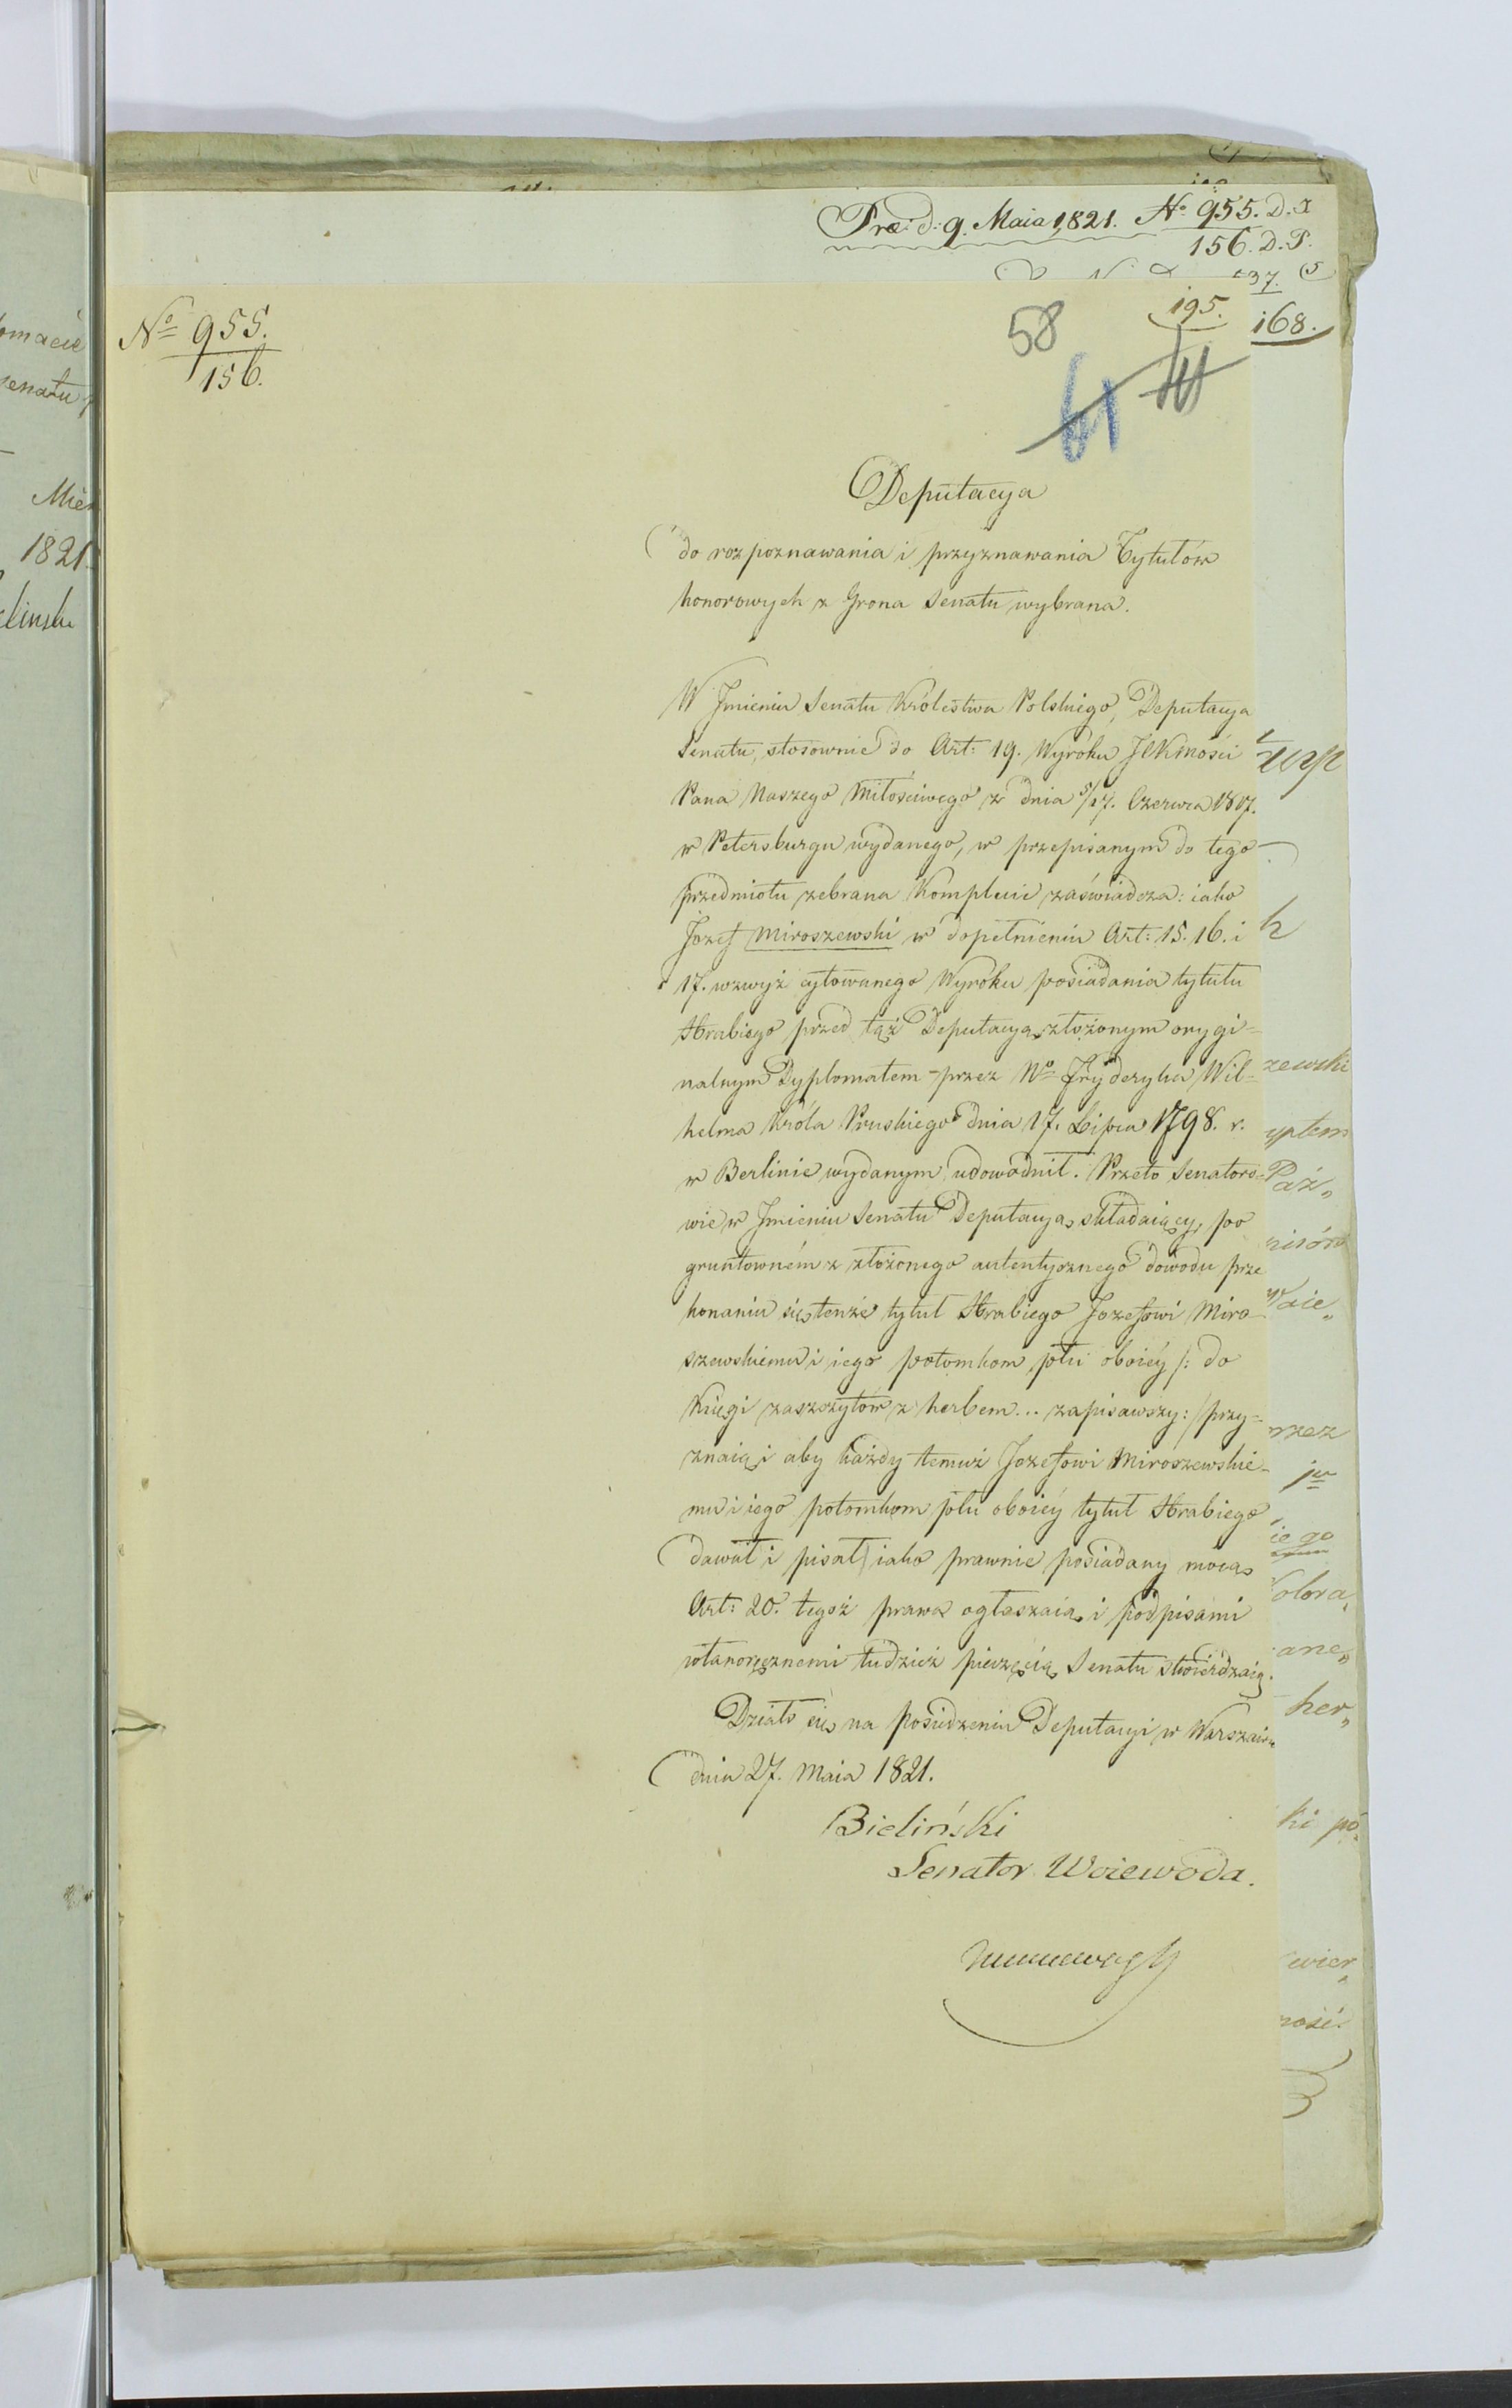 Præ: d: 9. Maia 1821. No 955. D. I
156. D. P.
No 955.
156.
58
195.
168.
61
Deputacya
do rozpoznawania i przyznawania Tytułów
honorowych z Grona Senatu wybrana.
W Jmieniu Senatu Królestwa Polskiego, Deputacya
Senatu, stosownie do Art: 19. Wyroku JCKMości
Pana Naszego Miłościwego z dnia 5/17. Czerwca 1817.
w Petersburgu wydanego, w przepisanym do tego
przedmiotu zebrana Komplecie zaświadcza: iako
Jozef Miroszewski w dopełnieniu Art: 15. 16. i
17. wzwyż cytowanego Wyroku posiadania tytułu
Hrabiego przed tąż Deputacyą złożonym orygi=
nalnym Dyplomatem przez No Fryderyka Wil=
helma Króla Pruskiego dnia 17. Lipca 1798. r.
w Berlinie wydanym udowodnił. Przeto Senatoro=
wie w Jmieniu Senatu Deputacyą składaiący, po
gruntowném z złożonego autentycznego dowodu prze
konaniu się tenże tytuł Hrabiego Jozefowi Miro-
szewskiemu i iego potomkom płci oboiéy /: do
Księgi zaszczytów z herbem... zapisawszy :/ przy=
znaią i aby każdy temuż Jozefowi Miroszewskie-
mu i iego potomkom płci oboiéy tytuł Hrabiego
dawał i pisał iako prawnie posiadany mocą
Art: 20. tegoż prawa ogłaszaią i podpisami
własnoręcznemi tudzież pieczęcią Senatu stwierdzaią.
Działo się na posiedzeniu Deputacyi w Warszawie
dnia 27. Maia 1821.
Bieliński
Senator Woiewoda.